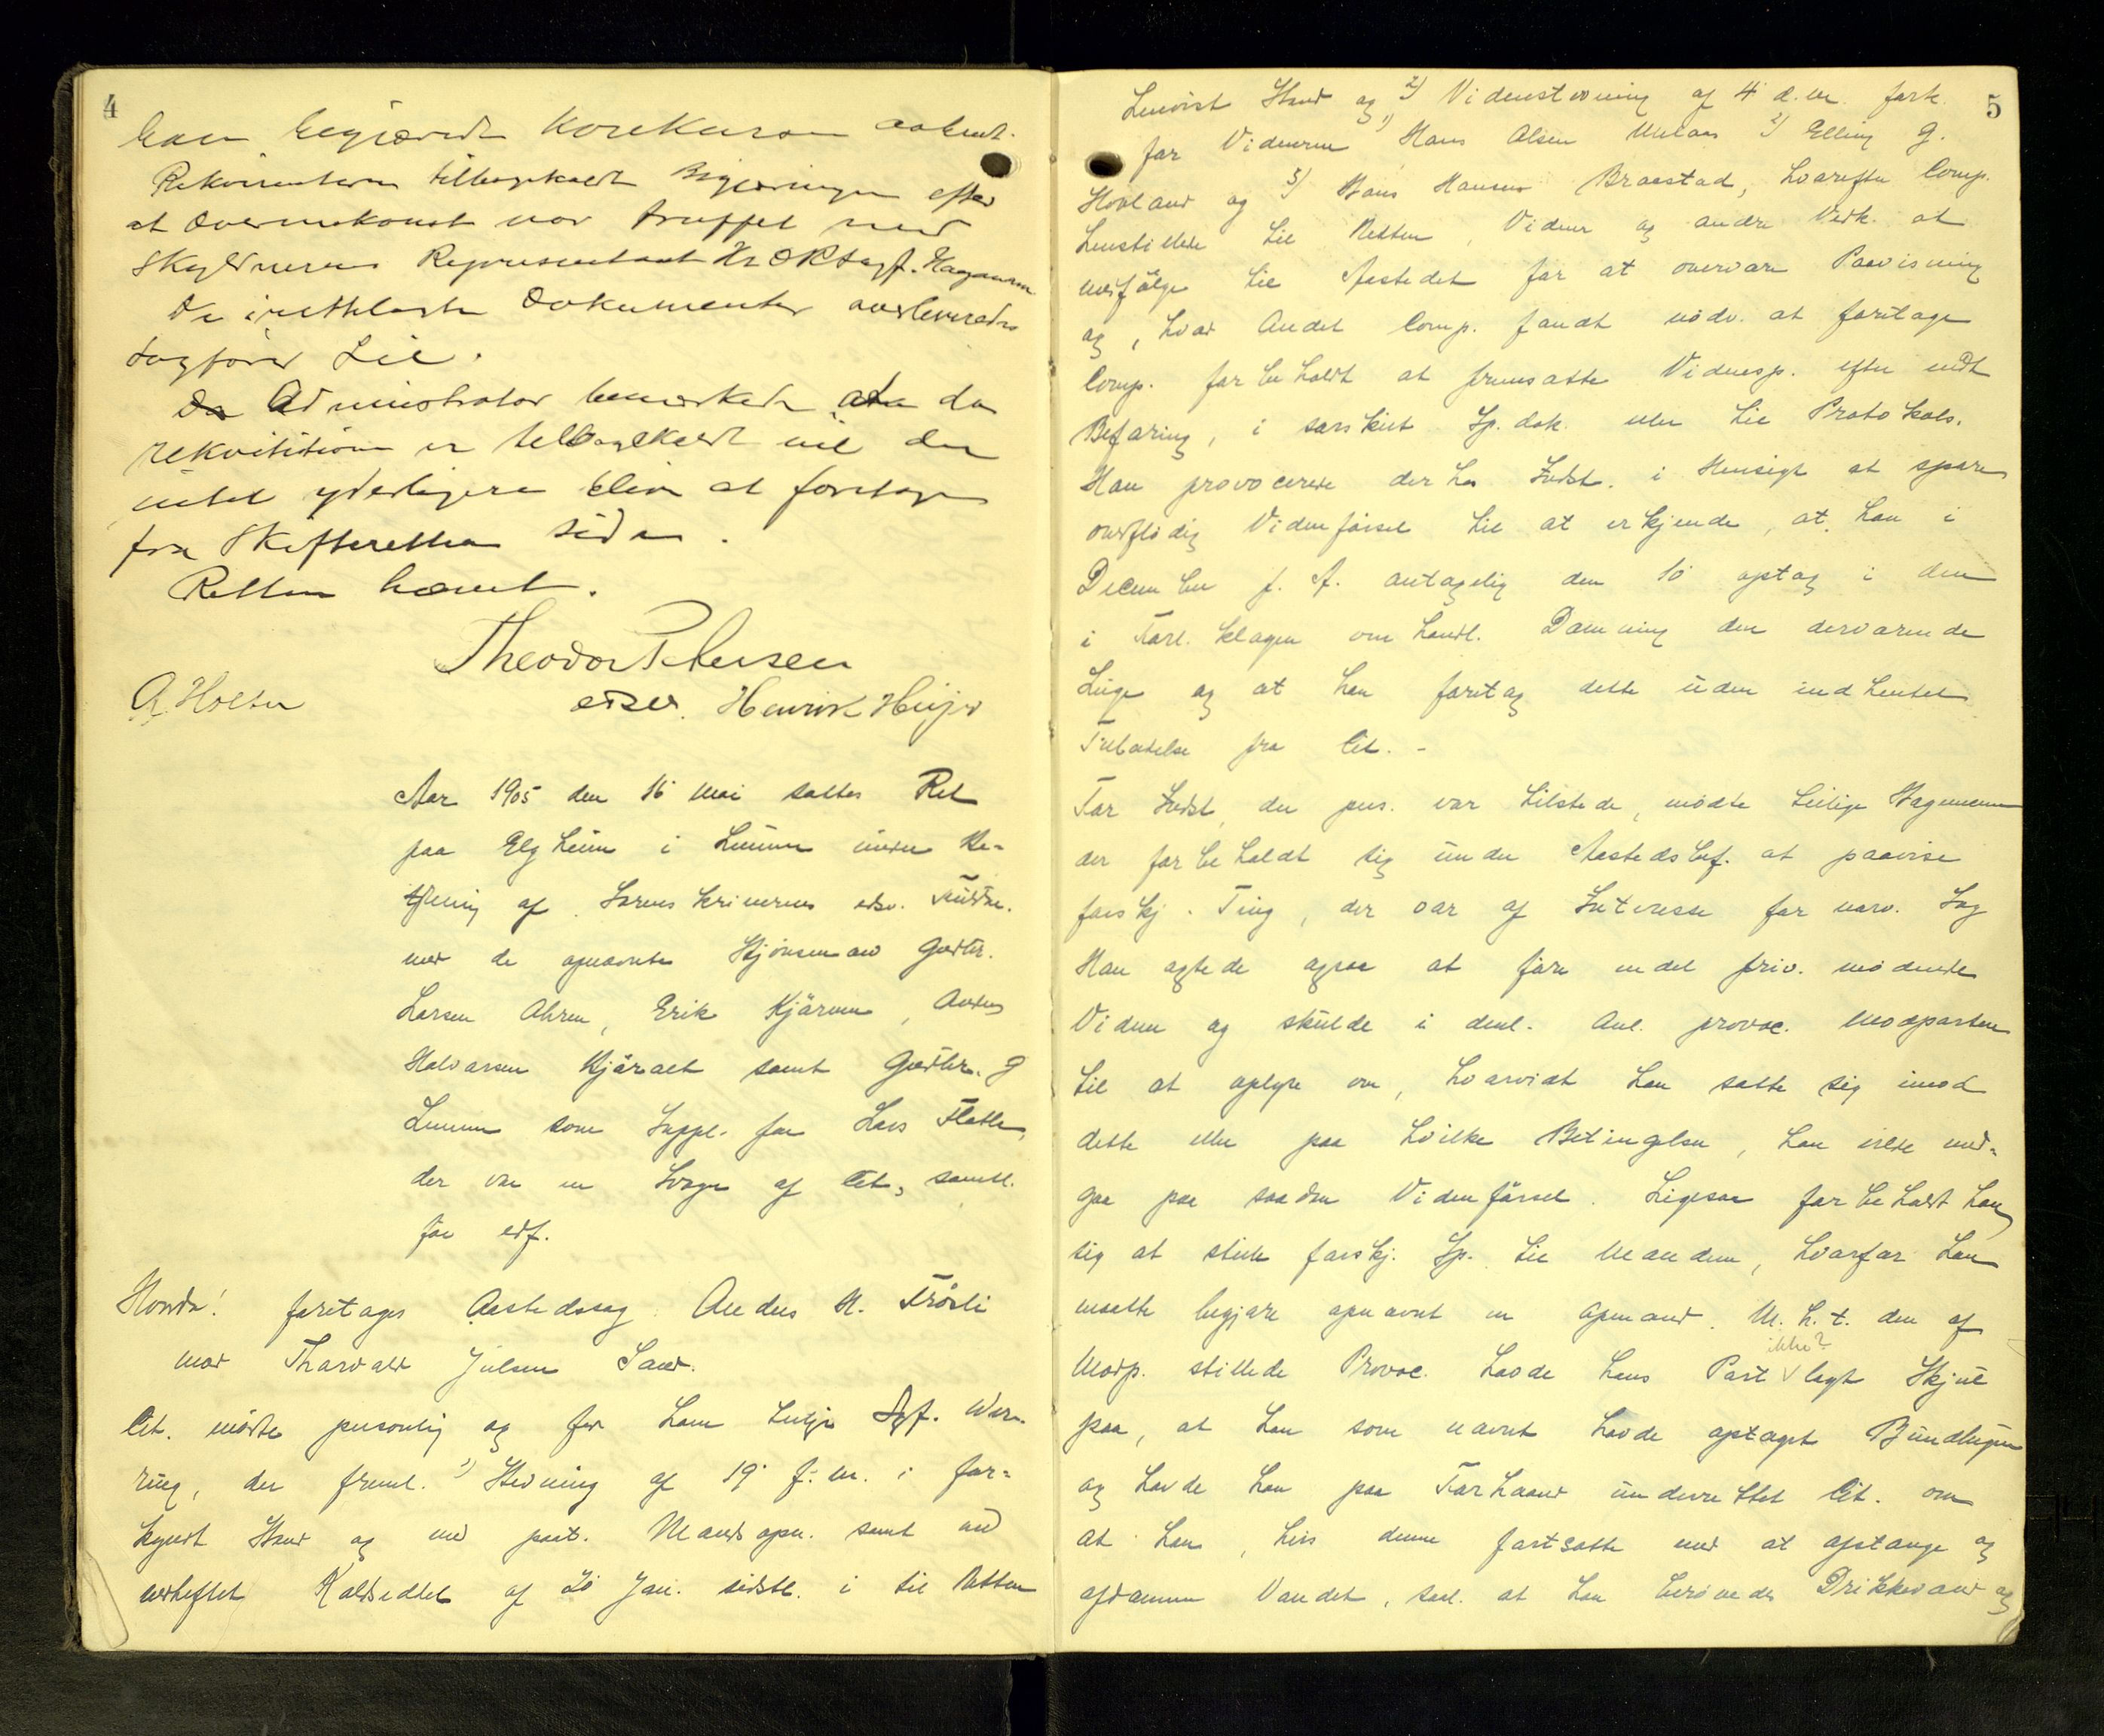 4
han begjærede Konkursen aabnet.
Rekvirenten tilbagekaldt Begjæringen efter
at overenskomst var truffet med
skyldnerens Representant Hr ORsagf. Hagemann
De i retthlagte Dokumenter overleveredes
sagfører Lie.
Administrator bemerkede at da
rekvisitionen er tilbagekaldt vil der
intet yderligere blive at foretage
fra Skifterettens side.
Retten hævet.
Theodor Petersen
edsv.
A Holter Henrik Heijer
Aar 1905 den 16 Mai sattes Ret
paa Elgheim i Lunner under Be-
tjening af Sorenskriverens edsv. Fuldm.
med de opnævnte Skjønsmænd Gudbr.
Larsen Ahren, Erik Kjærven, Anders
Halvorsen Kjøralt samt Gudbr. G
Lunner som Suppl. for Lars Flatla,
der var en Svoger af Cit., samtl.
før edf.
Hvorda! foretages Aastedssag Anders H. Trøsli
mod Thorvald Julsen Sand.
Cit. mødte personlig og for ham tillige Sgf. Wer-
ring, der freml. 1) Stevning af 19 f. M. i for-
kyndt Stand og med paat. Mandsopn. samt med
vedheftet Kaldseddel af 20 Jan. sidstl. i til Retten
5
henvist Stand og 2) Vidnestevning af 4 d.m. fork.
for Vidnerne 1) Hans Olsen 2) Elling G.
Hovland og 3) Hans Hansen Braastad, hvorefter Comp.
henstillede til Retten, Vidner og andre Vedk. at
medfølge til Aastedet for at overvære Paavisning
og, hvad Andet Comp. fandt nødv. at foretage
Comp. forbeholdt at fremsætte Vidnesp. efter endt
Befaring, i særskilt Sp.dok. eller til Protokols.
Han provocerede derhos Indst. i Hensigt at spare
overflødig Vidneførsel til at erkjende, at han i
December f. A. antagelig den 10 optog i den
i Forl.klagen omhandl. Damning den derværende
Luge og at han foretog dette uden indhentet
Tilladelse fra Cit. -
For Indst, der pers. var tilstede, mødte tillige Hagemann
der forbeholdt sig under Aastedsbef. at paavise
forskj. Ting, der var af Interesse for nærv. Sag
Han agtede ogsaa at føre endel friv. mødende
Vidner og skulde i denl. Anl. provoc. Modparten
til at oplyse om, hvorvidt han satte sig imod
dette eller paa hvilke Betingelser, han vilde ind-
gaa paa saadan Vidneførsel. Ligesaa forbeholdt han
sig at stille forskj. Sp. til Manden, hvorfor han
maatte begjære opnævnt en Opmand. M. h. t. den af
Modp. stillede Provoc. havde hans Part ikke? lagt Skjul
paa, at han som nævnt havde optaget Bundlugen
og havde han paa Forhaand underrettet Cit. om
at han, hvis denne fortsatte med at opstænge og
opdæmme Vandet, saal. at han berøvedes Drikkevand og